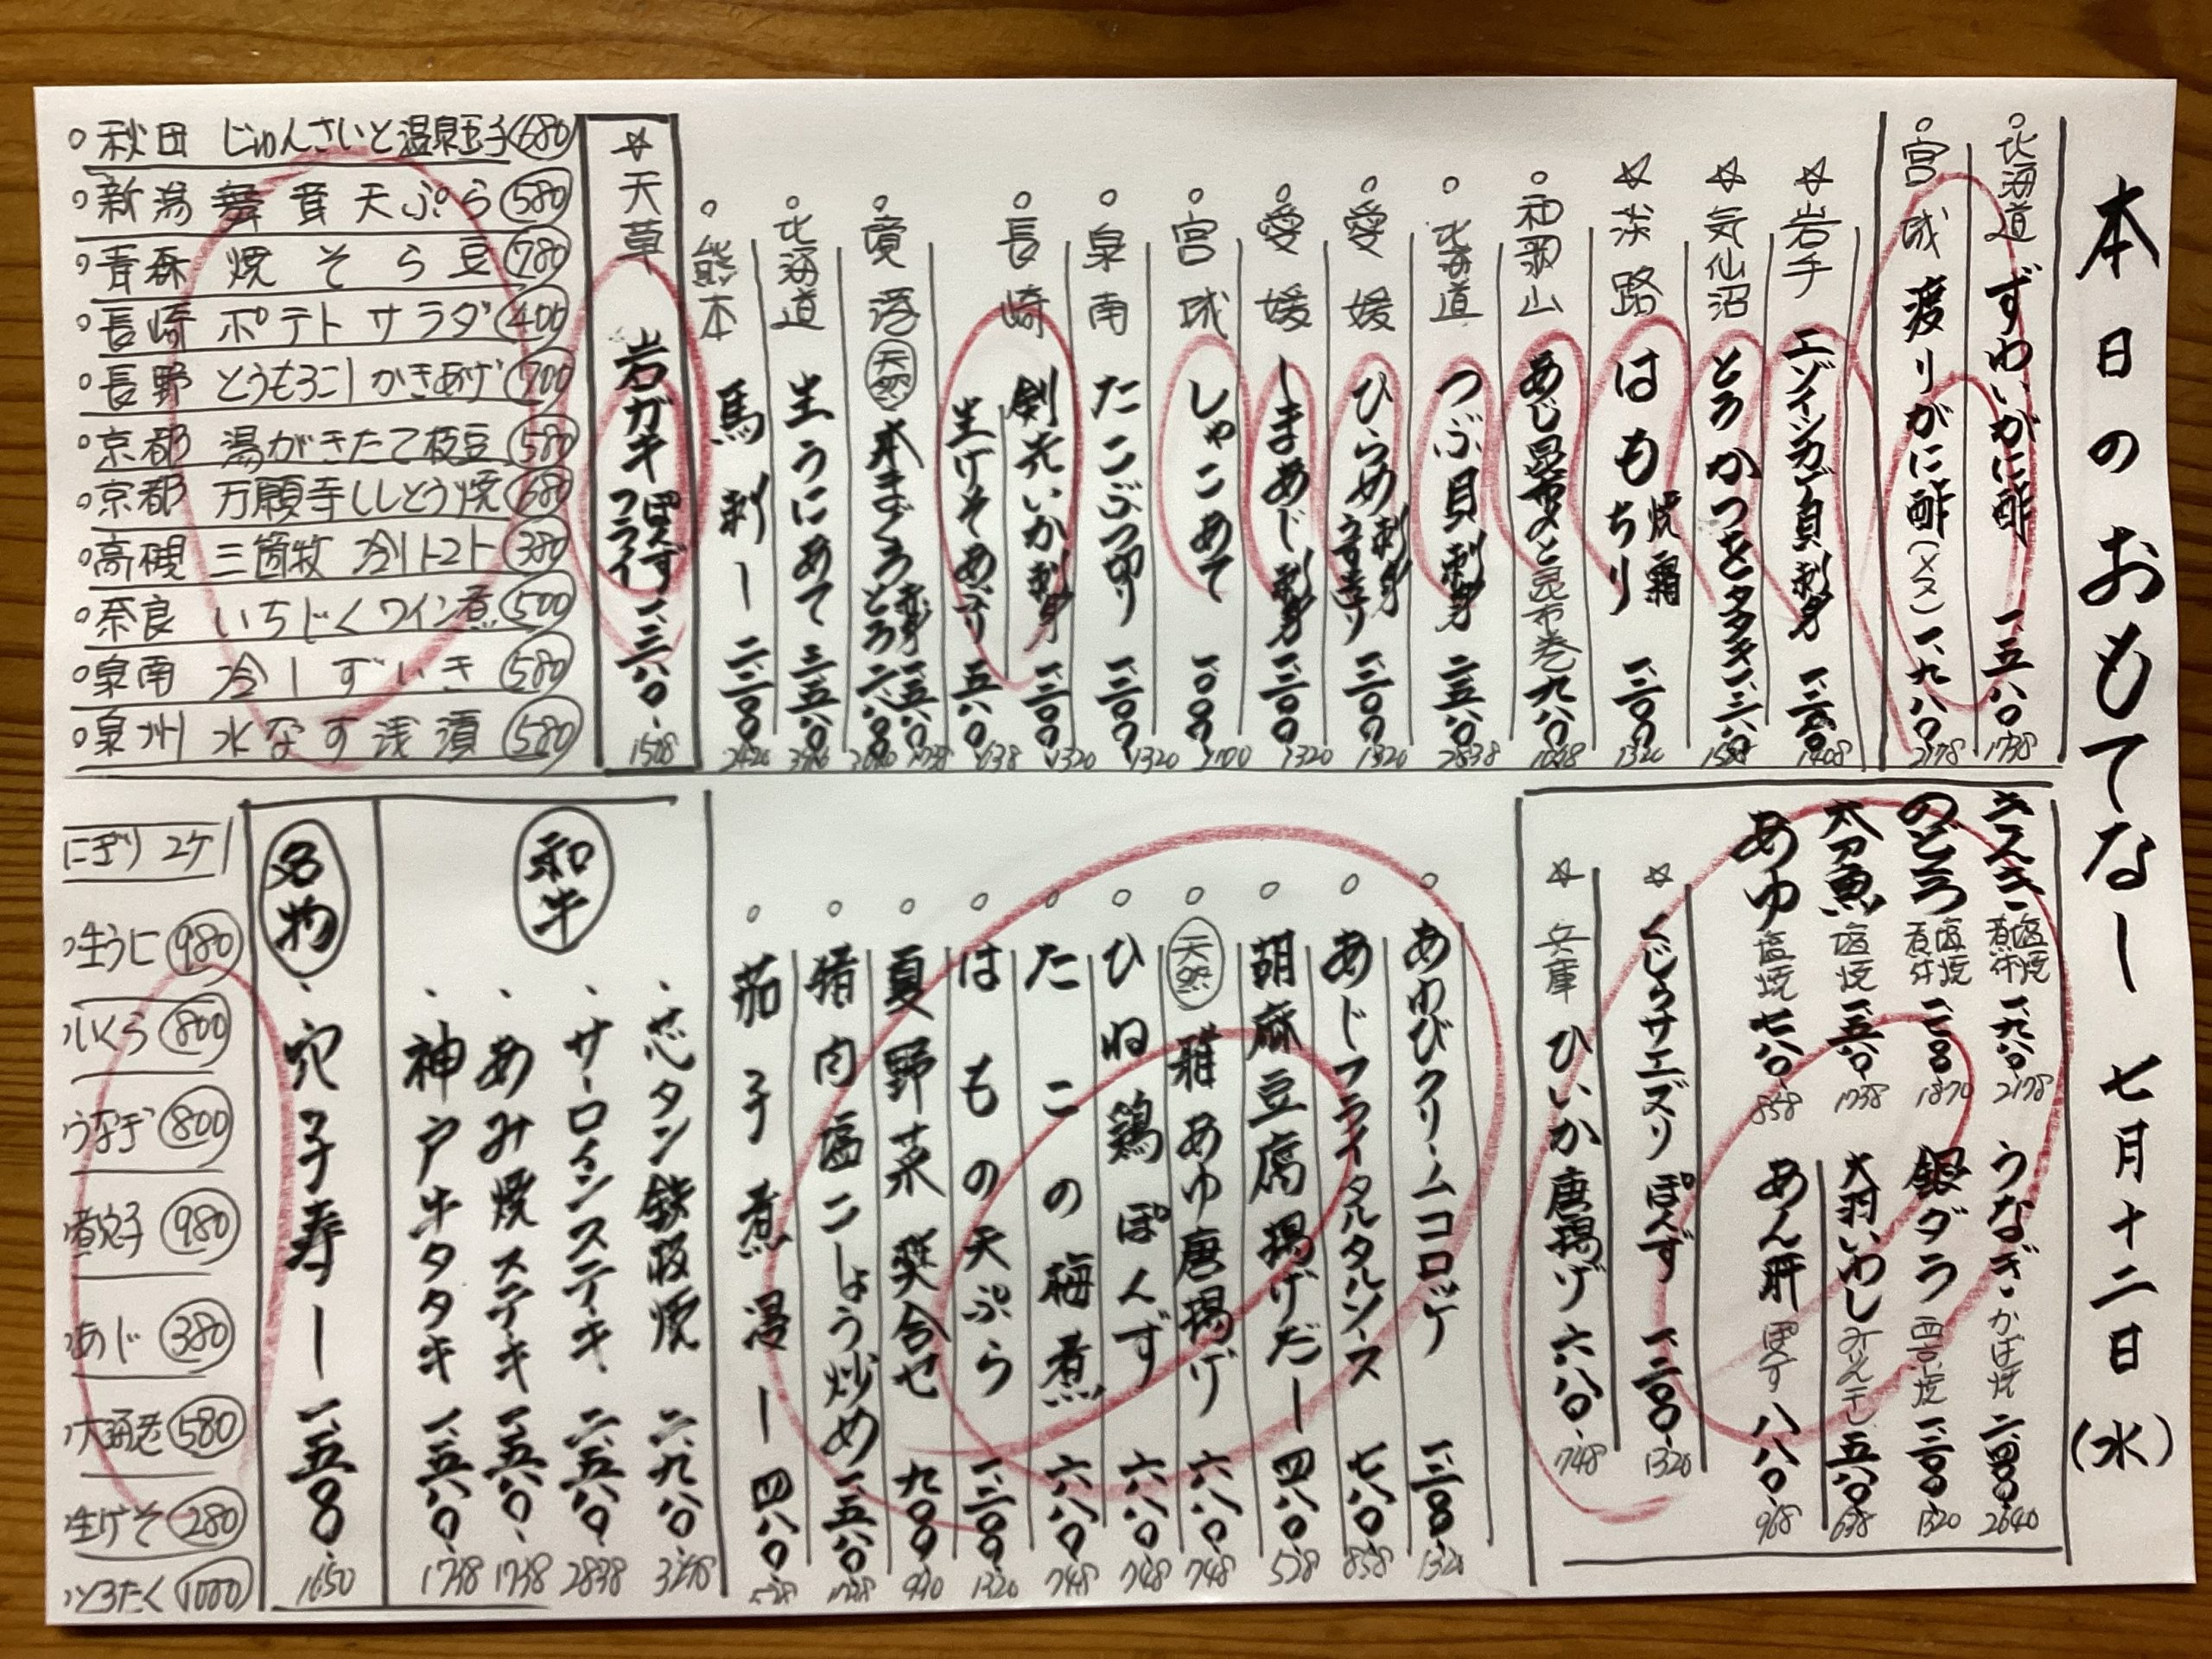 本日のおもてなし 七月十二日(水)
○北海道 ずわいがに酢 一、五八〇 1738
○宮城 渡りがに酢(メス) 一、九八〇 2178
☆岩手 エゾイシカゲ貝刺身 一、二八〇 1408
☆気仙沼 とろかつをタタキ 一、三八〇
☆淡路 はもちり 焼霜 一、二〇〇 1320
○和歌山 あじ昆布〆と昆布巻 九八〇
○北海道 つぶ貝刺身 二、五八〇 2838
○愛媛 ひらめ 刺身 うす造り 一、二〇〇 1320
○愛媛 しまあじ刺身 一、二〇〇 1320
○宮城 しゃこあて 一、〇〇〇 1100
○泉南 たこぶつ切り 一、二〇〇 1320
○長崎 剣先いか刺身 一、二〇〇 1320
生げそあぶり 五八〇 638
○境港 天然 本まぐろ 赤身 一、五八〇 1738
とろ
○北海道 生うにあて 三、五八〇
○熊本 馬刺し 二、二〇〇 2420
☆天草 岩ガキ ぽんず フライ 一、三八〇 1518
○秋田 じゅんさいと温泉玉子 680
○新潟 舞茸天ぷら 580
○青森 焼そら豆 780
○長崎 ポテトサラダ 400
○長野 とうもろこしかきあげ 700
○京都 湯がきたて枝豆 580
○京都 万願寺ししとう焼 680
○高槻 三箇牧 冷しトマト 380
○奈良 いちじくワイン煮 500
○泉南 冷しずいき 580
○泉州 水なす浅漬 580
きんき 塩焼 煮付 一、九八〇 2178
のどぐろ 塩焼 煮付 一、七〇〇 1870
太刀魚 塩焼 一、五八〇 1738
あゆ 塩焼 七八〇 858
うなぎ かば焼 二、四〇〇 2640
銀ダラ 西京焼 一、二〇〇 1320
大羽いわし みりん干し 五八〇 638
あん肝 ぽんず 八八〇 968
☆くじらサエズリ ぽんず 一、二〇〇 1320
☆兵庫 ひいか唐揚げ 六八〇 748
○あわびクリームコロッケ 一、二〇〇 1320
○あじフライタルタルソース 七八〇 858
○胡麻豆腐揚げだし 四八〇 528
○天然 稚あゆ唐揚げ 六八〇 748
○ひね鶏ぽんず 六八〇 748
○たこの梅煮 六八〇 748
○はもの天ぷら 一、二〇〇 1320
○夏野菜炊合せ 九〇〇 990
○猪肉塩こしょう炒め 一、五八〇 1738
○茄子煮浸し 四八〇 528
和牛
、芯タン鉄板焼 二、九八〇 3278
、サーロインステーキ 二、五八〇 2838
、あみ焼ステーキ 一、五八〇 1738
、神戸牛タタキ 一、五八〇 1738
名物
、穴子寿し 一、五〇〇 1650
にぎり 2ケ
○生うに 980
○いくら 800
○うなぎ 800
○煮穴子 980
○あじ 380
○大海老 580
○生げそ 280
○とろたく 1000